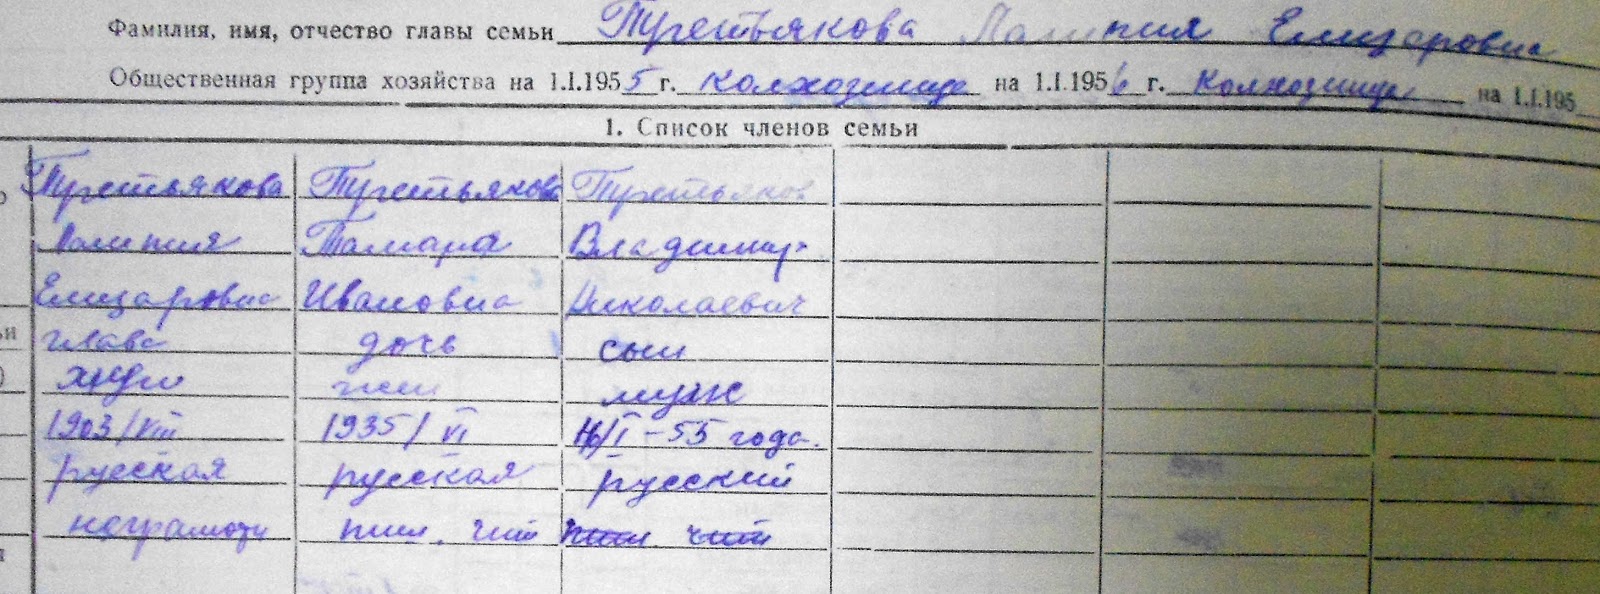 Фамилия, имя, отчество главы семьи Третьякова Елизаровна
Общественная группа хозяйства на 1.I.1955 г. колхозница на 1.I.1956 г. колхозница на 1.I.195
1. Список членов семьи
Третьякова Третьякова Третьяков
Тамара Владимир
Елизаровна Ивановна Николаевич
глава дочь сын
жен жен муж
1903/VIII 1935/VI 16/I-55 года.
русская русская русский
неграмотн пиш. чит пиш. чит